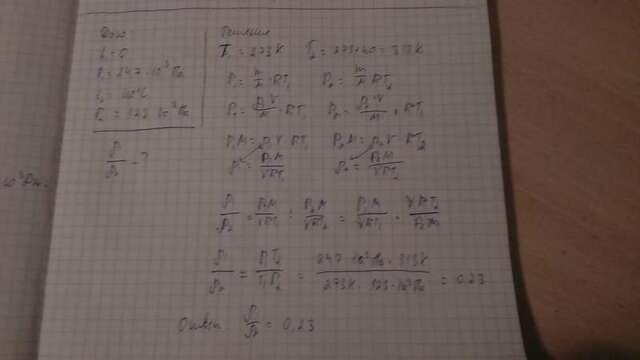 Дано
t₁ = 0
P₁ = 247 · 10³ Па
t₂ = 40°C
ρ/ρ₂ - ?
Решение
T₁ = 273 K T₂ = 273+40 = 313 K
P₁ = m/M · RT₁ P₂ = m/M RT₂
P₁ = ρ₁V/M · RT₁ P₂ = ρ₂V/M · RT₁
P₁M = ρ₁V · RT₁ P₂M = ρ₂V · RT₂
ρ = P₁M/VRT₁ ρ₂ = P₂M/VRT₂
ρ/ρ₂ = P₁M/VRT₁ : P₂M/VRT₂ = P₁M/VRT₁ · VRT₂/P₂M
ρ/ρ₂ = P₁T₂/T₁P₂ = 247 · 10³ Па · 313K / 273K · 123 · 10³ Па = 0,23
Ответ ρ/ρ₂ = 0,23